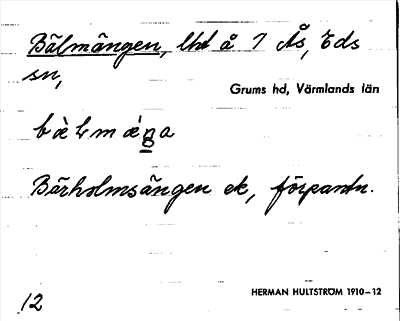 Bälmängen, lhd å 7 Ås, Eds
sn,
Grums hd, Värmlands län
Bärholmsängen ek, förpantn.
12
HERMAN HULTSTRÖM 1910–12